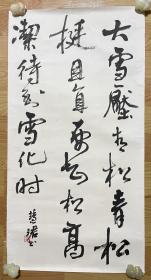 大雪壓青松青松
挺且直要知松高
潔待到雪化时